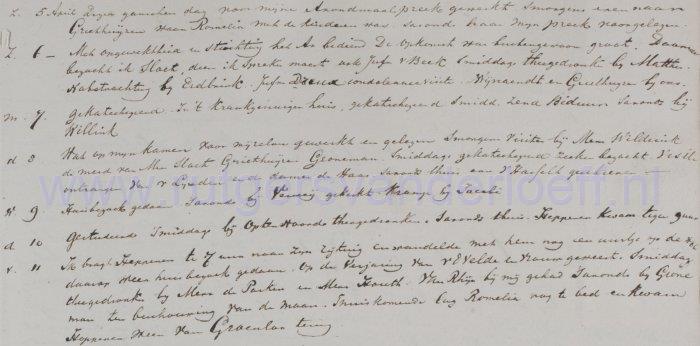 Z. 5 April Dezen ganschen dag voor mijne Avondmaalpreek gewerkt Smorgens even naar
Griethuijzen waar Romelia met de kinderen was. Savonds haar mijn preek voorgelezen.
Z. 6 – Met opgewektheid en stichting het Av. bediend De opkomst was buitengewoon groot. Daarna
bezocht ik Slaet, dien ik spreken moest ook Jufv v Beek Smiddags theegedronken bij Matthes
Nabetrachting bij Eedbrink. Jufv condoleancevisite. Wijnaendt en bij ons.
m. 7. gekatechiseerd. In 't Krankzinnigen huis, gekatechiseerd Smidd. Biduur Savonds bij
Willink
d 8 Wat op mijn kamer voor mijzelven gewerkt en gelezen Smorgens visites bij Mevr Welderick
de meid van Mevr Slaet Grieth Groneman. Smiddags gekatechiseerd zieken bezocht. Visite
ontvangen van v Lijnden en dames de Haas, Savonds thuis, en v Hasselt gebleven
W 9 Huisbezoek gedaan Savonds bij gebruikt bij Jacobi
d. 10 Gestudeerd Smiddags bij Opten Noorde theegedronken. Savonds thuis. Heppener kwam tegen
v. 11 Ik bragt Heppener te 7 uren naar Zijn rijtuig en wandelde met hem nog een uurtje op de
daarop weer huisbezoek gedaan. Op de verjaring van v E Velde en vrouw geweest. Smiddags
theegedronken bij Mevr de Parker en Mevr Houth. v Rhijn bij mij gehad Savonds bij Grone
man ter beschouwing van de maan. Thuiskomende lag Romelia nog te bed en kwam
Heppener weer van Groenloo terug
www.rutgersvanderloeff.nl